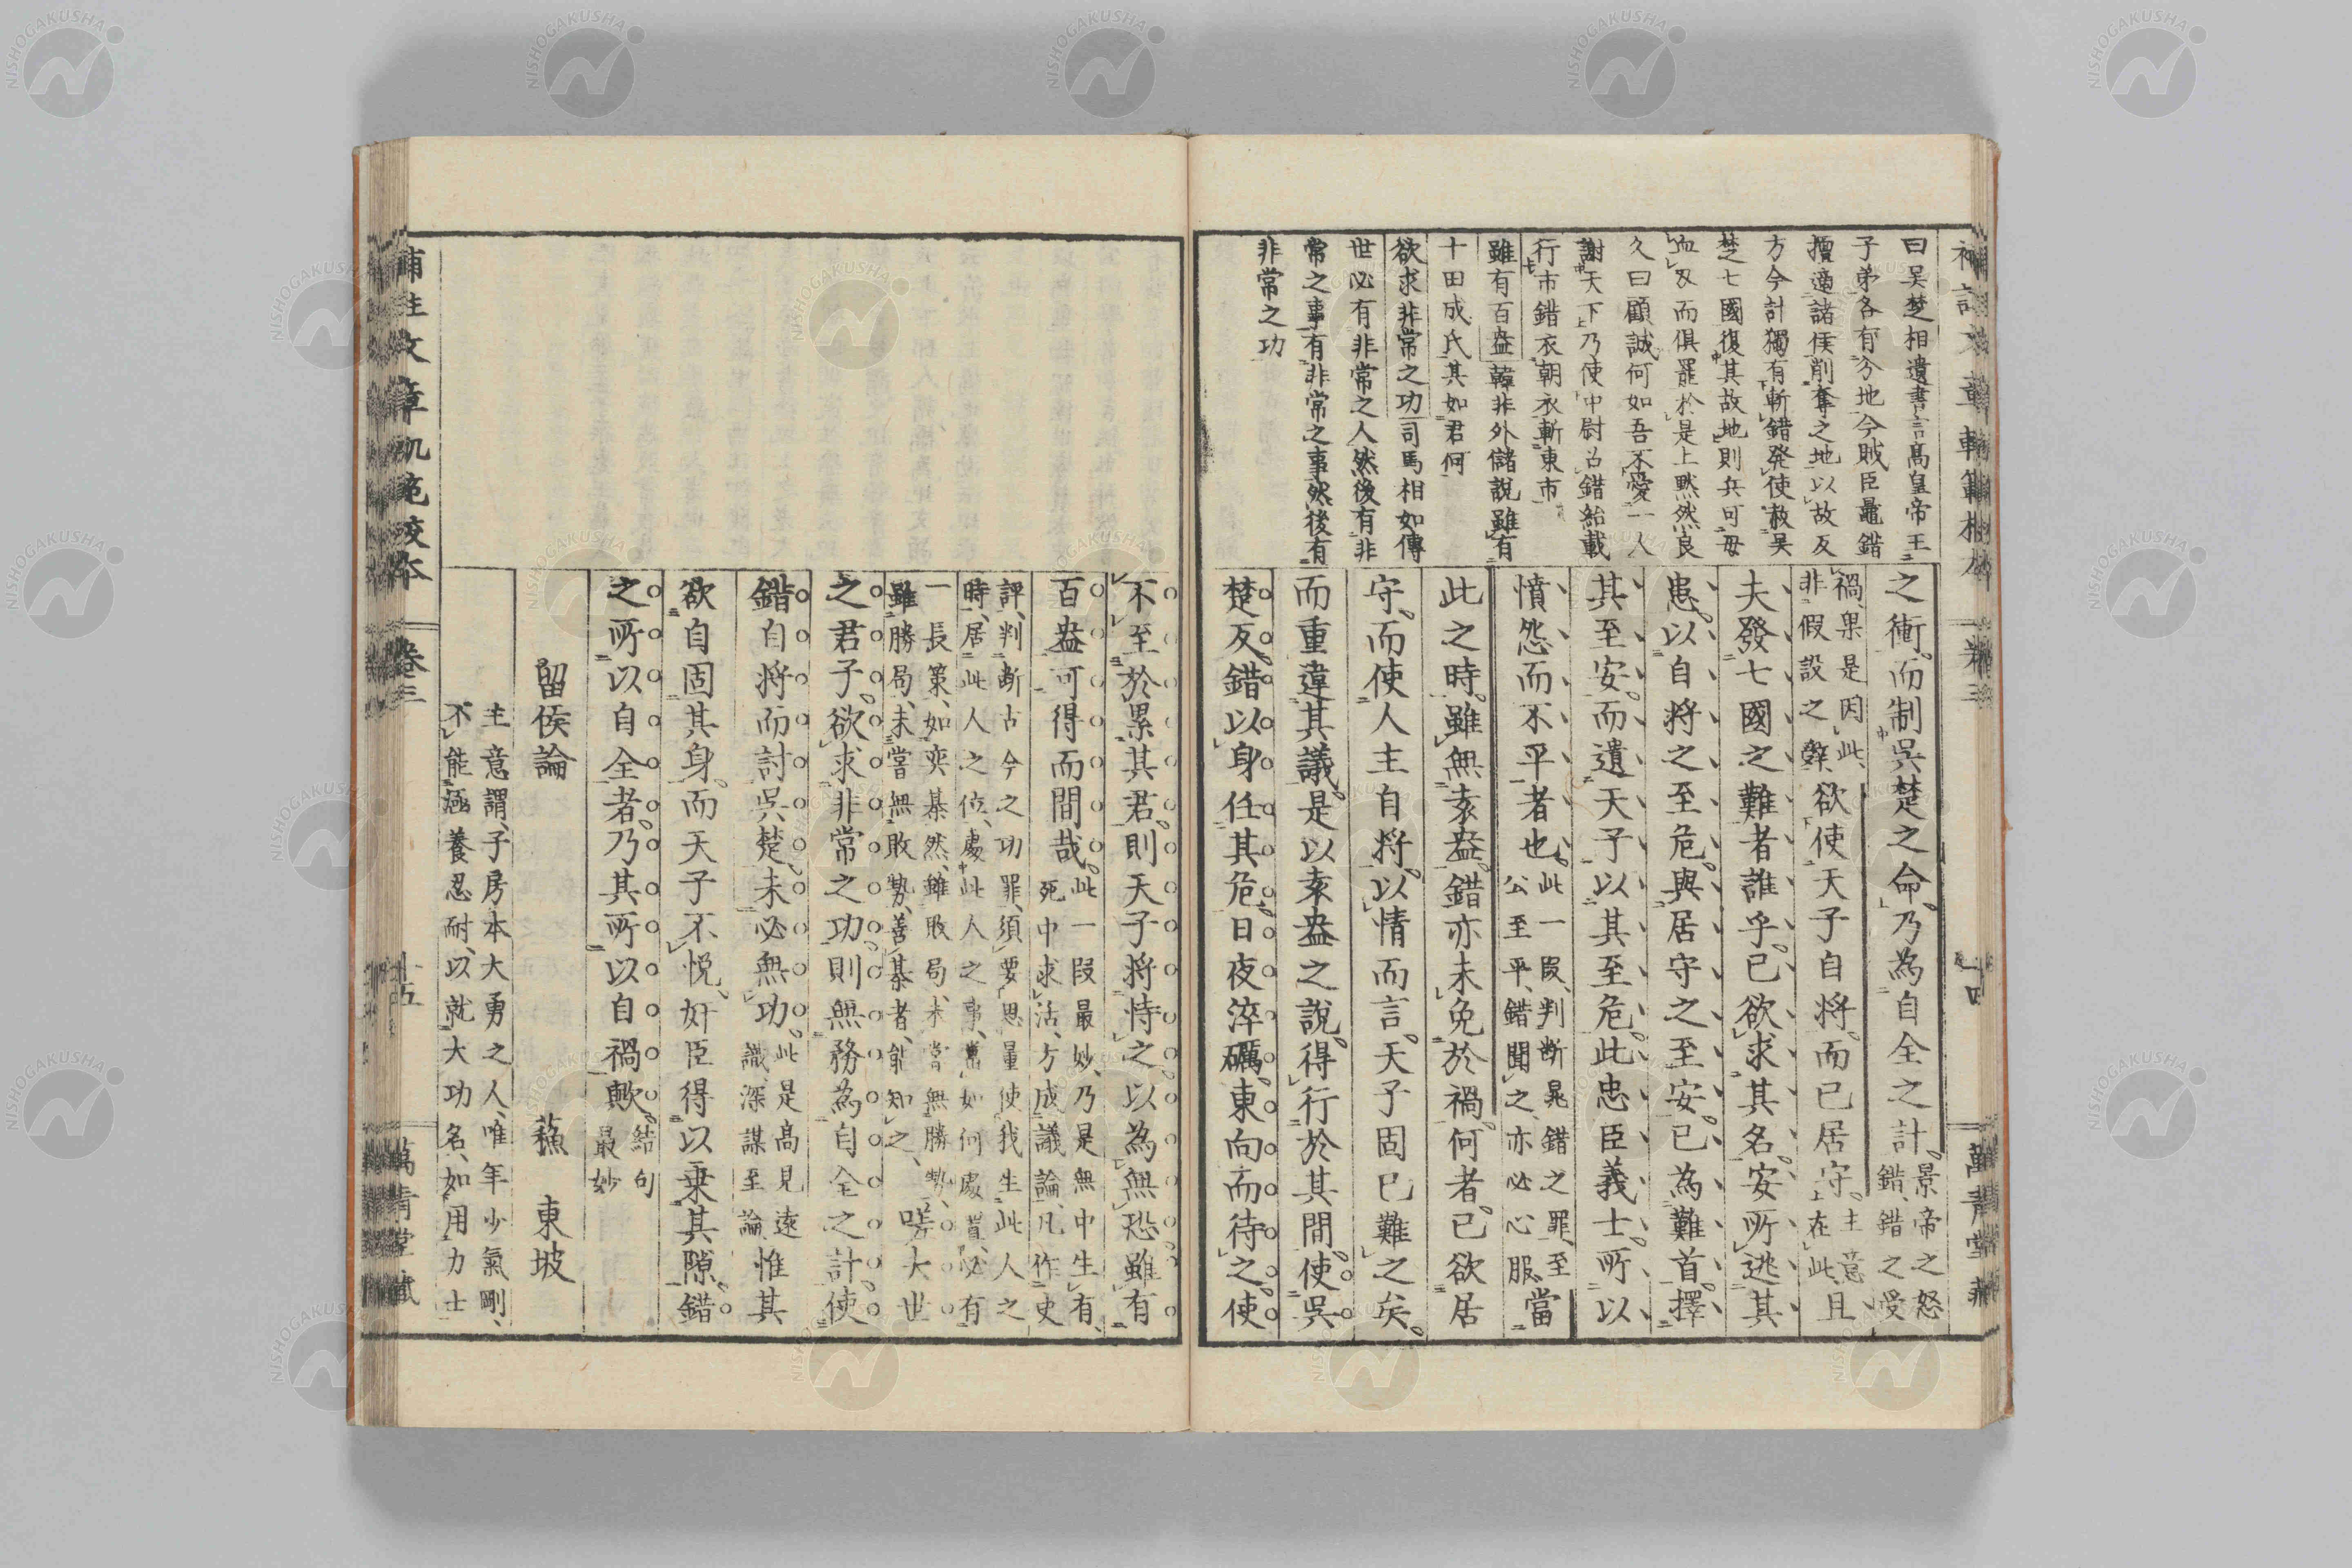 曰吴楚相遺書言髙皇帝王
子弟各有分地今賊臣鼂錯
擅適諸侯削奪之地以故反
方今計獨有斬錯発使赦吴
楚七國復其故地則兵可毋
血刃而俱罷於是上黙然良
久曰顧誠何如吾不愛一人
謝天下乃使中尉召錯紿載
行市錯衣朝衣斬東市
雖有百盎韓非外儲說雖有
十田成氏其如君何
欲求非常之功司馬相如傳
世必有非常之人然後有非
常之事有非常之事然後有
非常之功
之衝而制吳楚之命乃為自全之計景帝之怒
錯錯之受
禍果是因此
非假設之辭欲使天子自将而已居守主意
在此且
夫發七國之難者誰乎已欲求其名安所逃其
患以自将之至危與居守之至安已為難首擇
其至安而遺天子以其至危此忠臣義士所以
憤怨而不平者也此一段判断晁錯之罪至
公至平錯聞之亦必心服當
此之時雖無袁盎錯亦未免於禍何者已欲居
守而使人主自将以情而言天子固已難之矣
而重違其議是以袁盎之說得行於其間使吳
楚反錯以身任其危日夜淬礪東向而待之使
不至於累其君則天子将恃之以為無恐雖有
百盎可得而間哉此一段最妙乃是無中生有
死中求活方成議論凡作史
評判断古今之功罪須要思量使我生此人之
時居此人之位處此人之事當如何處置必有
一長策如奕棊然雖敗局未嘗無勝勢
雖勝局未嘗無敗勢善棊者能知之嗟夫世
之君子欲求非常之功則無務為自全之計使
錯自将而討吳楚未必無功此是髙見遠
識深謀至論惟其
欲自固其身而天子不悦奸臣得以乗其隙錯
之所以自全者乃其所以自禍歟結句
最妙
留侯論　蘓　東坡
主意謂子房本大勇之人唯年少氣剛
不能涵養忍耐以就大功名如用力士
章軌範校本　卷三　十五